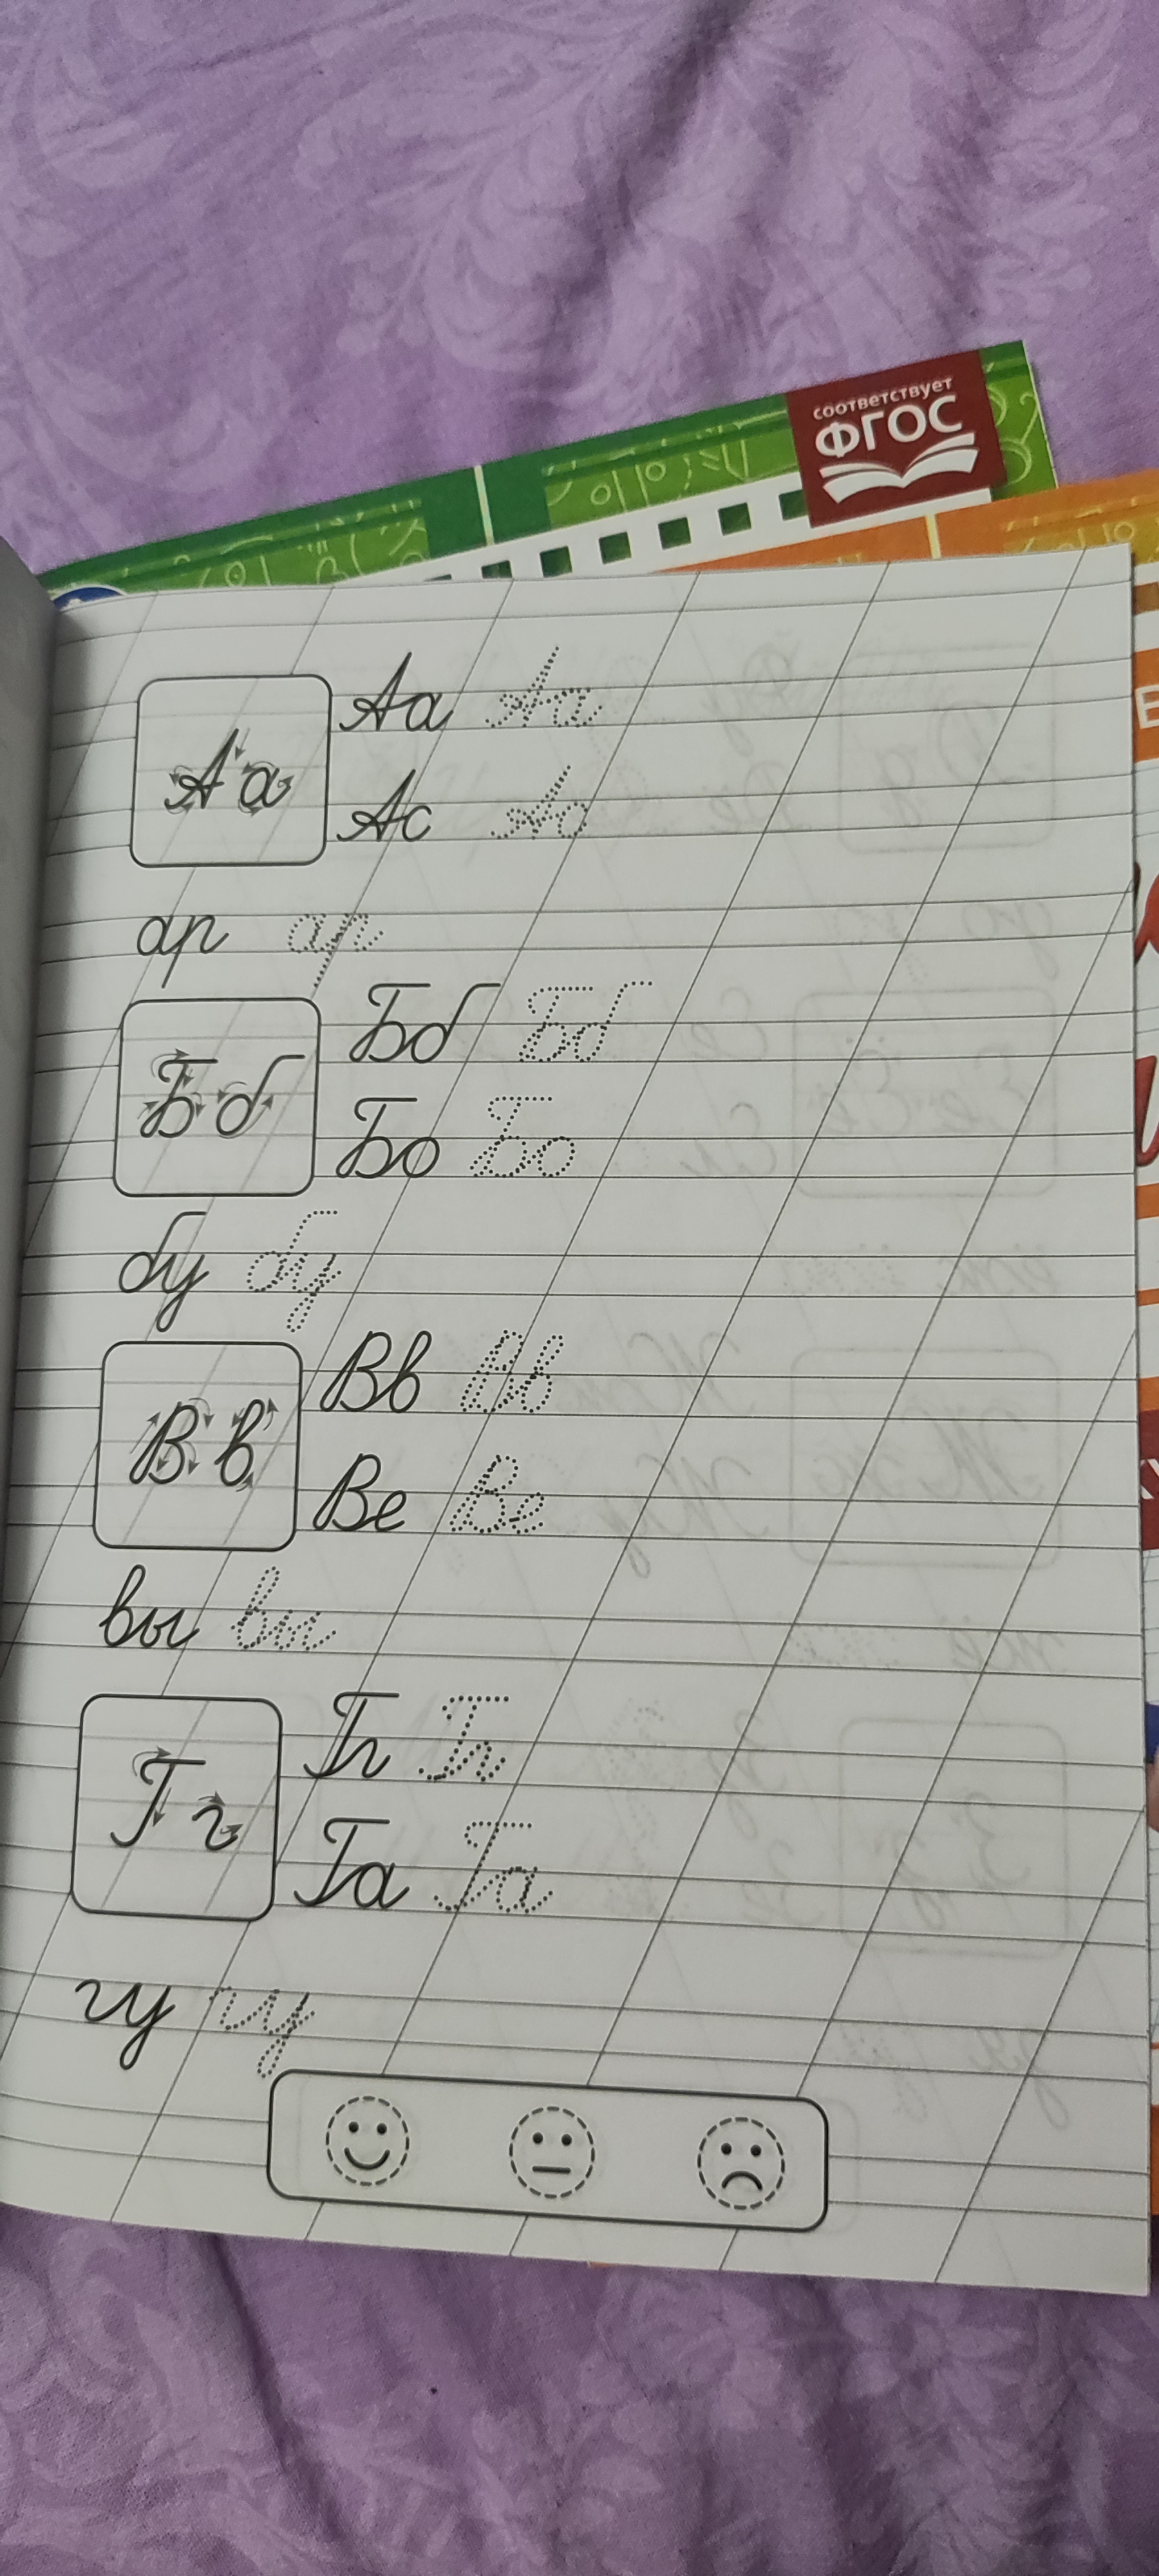 соответствует
ФГОС
Аа Аа Аа
Ас Ас
ар ар
Бб Бб Бб
Бо Бо
бу бу
Вв Вв Вв
Ве Ве
вы вы
Гг Гг Гг
Га Га
гу гу